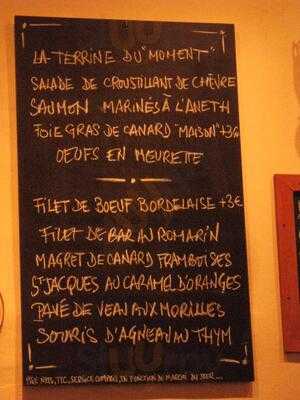 LA TERRINE DU "MOMENT"
SALADE DE CROUSTILLANT DE CHÈVRE
SAUMON MARINÉS À L'ANETH
FOIE GRAS DE CANARD "MAISON" +3€
OEUFS EN MEURETTE
FILET DE BOEUF BORDELAISE +3€
FILET DE BAR AU ROMARIN
MAGRET DE CANARD FRAMBOISES
ST JACQUES AU CARAMEL D'ORANGES
PAVÉ DE VEAU AUX MORILLES
SOURIS D'AGNEAU AU THYM
PRIX NETS, TTC, SERVICE COMPRIS, EN FONCTION DU MARCHÉ DU JOUR...